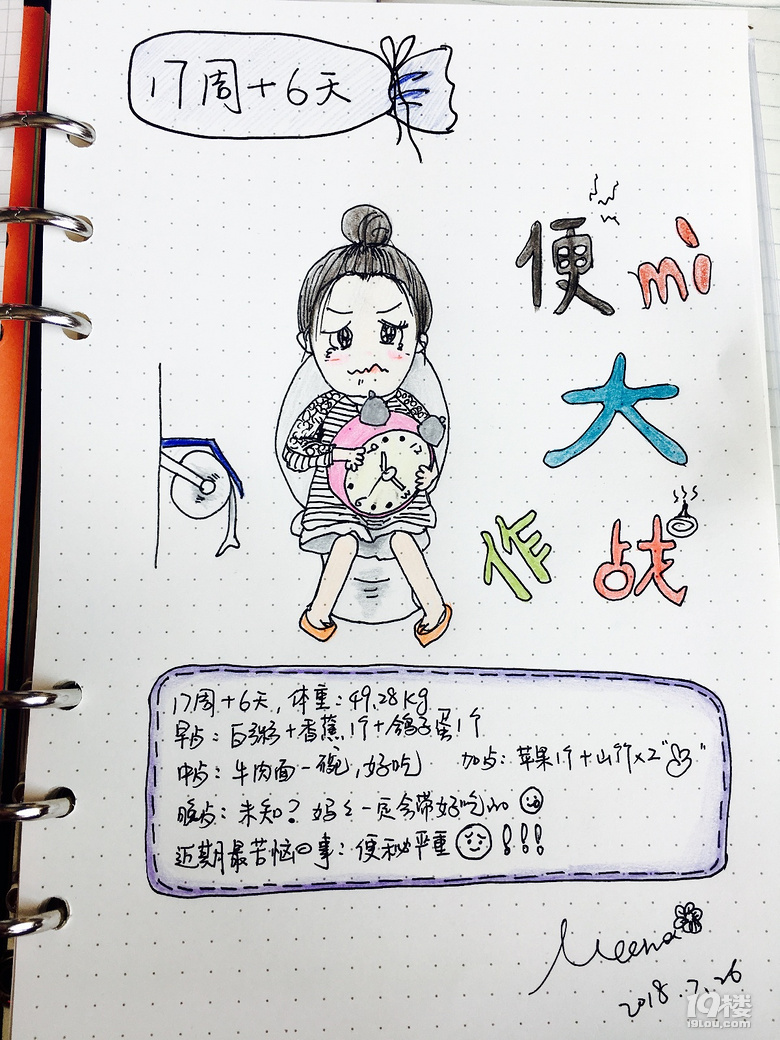 17周+6天
便mi
大
作战
17周+6天, 体重: 49.28kg
早点: 白粥+香蕉1个+鸽子蛋1个
中点: 牛肉面一碗, 好吃 加点: 苹果1个+山竹x2""
晚点: 未知? 妈々一定会带好吃的
近期最苦恼の事: 便秘严重 !!!
Meena
2018.7.26
19楼
19lou.com